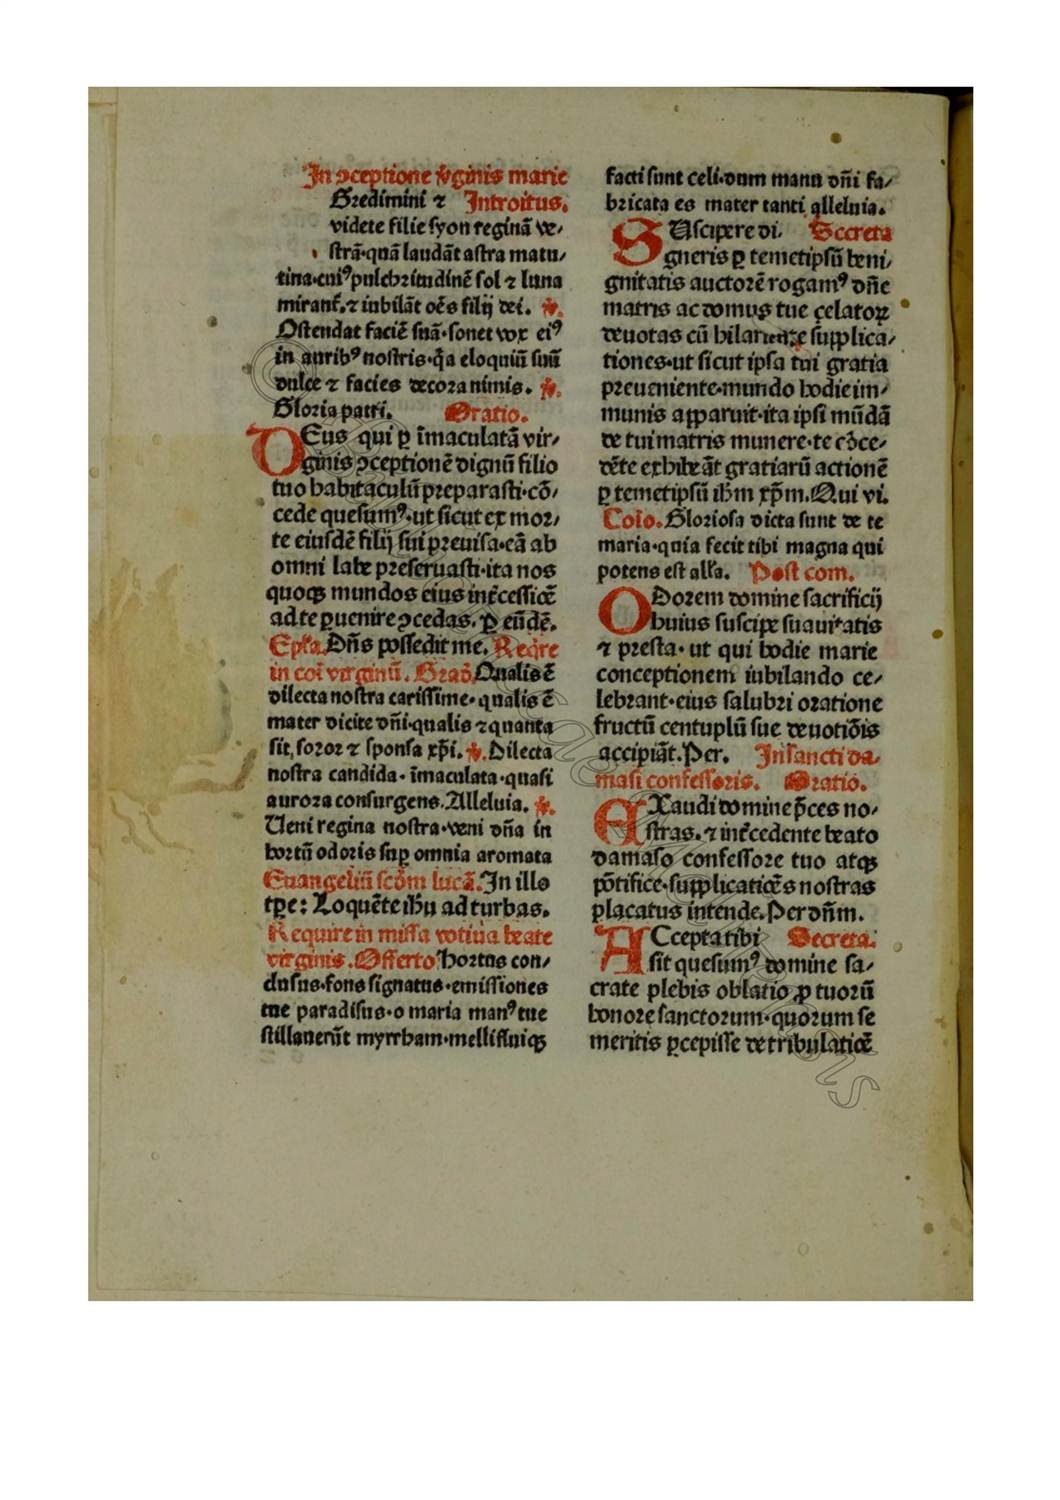 In ꝯceptione v̾ginis marie
Gredimini ⁊ Introitus.
videte filie syon reginā ve⸗
strā·quā laudāt astra matu⸗
tina·cui⁹ pulchritudinē sol ⁊ luna
mirant᷑·⁊ iubilāt oēs filij dei. ℣.
Ostendat faciē suā·sonet vox ei⁹
in aurib⁹ nostris·q̄a eloquiū suū
dulce ⁊ facies decora nimis. ℣.
Gloria patri. Oratio.
DEus qui ꝑ īmaculatā vir⸗
ginis ꝯceptionē dignū filio
tuo habitaculū preparasti·cō⸗
cede quesum⁹·ut sicut ex mor⸗
te eiusdē filij sui preuisa·eā ab
omni labe preseruasti·ita nos
quoqꝫ mundos eius int̄cessiōe
ad te ꝑuenire ꝯcedas. Ꝑ eūdē.
Epl̄a. Dn̄s possedit me. Reqͥre
in coī virginū. Grad̄. Qualis ē
dilecta nostra carissime·qualis ē
mater dicite dn̄i·qualis ⁊ quanta
sit, soror ⁊ sponsa xp̄i. ℣. Dilecta
nostra candida·īmaculata·quasi
aurora consurgens. Alleluia. ℣.
Ueni regina nostra·veni dn̄a in
hortū odoris sup̲ omnia aromata
Euangeliū scd̄m lucā. In illo
tꝑe: Loquēte ih̄u ad turbas.
Require in missa votiua beate
virginis. Offerto Hortus con⸗
clusus·fons signatus·emissiones
tue paradisus·o maria man⁹ tue
stillauerūt myrrham·mellifluiqꝫ
facti sunt celi·dum manu dn̄i fa⸗
bricata es mater tanti alleluia.
SUscipere di⸗ Secreta
gneris ꝑ temetipsū beni⸗
gnitatis auctorē rogam⁹ dn̄e
matris ac domus tue celatoꝝ
deuotas cū hilaritate supplica⸗
tiones·ut sicut ipsa tui gratia
preueniente·mundo hodie im⸗
munis apparuit·ita ipsi mūdā
de tui matris munere·te cōce⸗
dēte exhibeāt gratiarū actionē
ꝑ temetipsū ih̄m xp̄m. Qui vi.
Coīo. Gloriosa dicta sunt de te
maria·quia fecit tibi magna qui
potens est all̄a. Post com.
ODorem domine sacrificij
huius suscipe suauitatis
⁊ presta·ut qui hodie marie
conceptionem iubilando ce⸗
lebrant·eius salubri oratione
fructū centuplū sue deuotiōis
accipiāt. Per. In sancti da⸗
masi confessoris. Oratio.
EXaudi domine p̄ces no⸗
stras·⁊ int̄cedente beato
damaso confessore tuo atqꝫ
pōtifice·supplicatiōes nostras
placatus intende. Per dn̄m.
ACcepta tibi Secreta.
sit quesum⁹ domine sa⸗
crate plebis oblatio ꝓ tuorū
honore sanctorum·quorum se
meritis ꝑcepisse de tribulatiōe